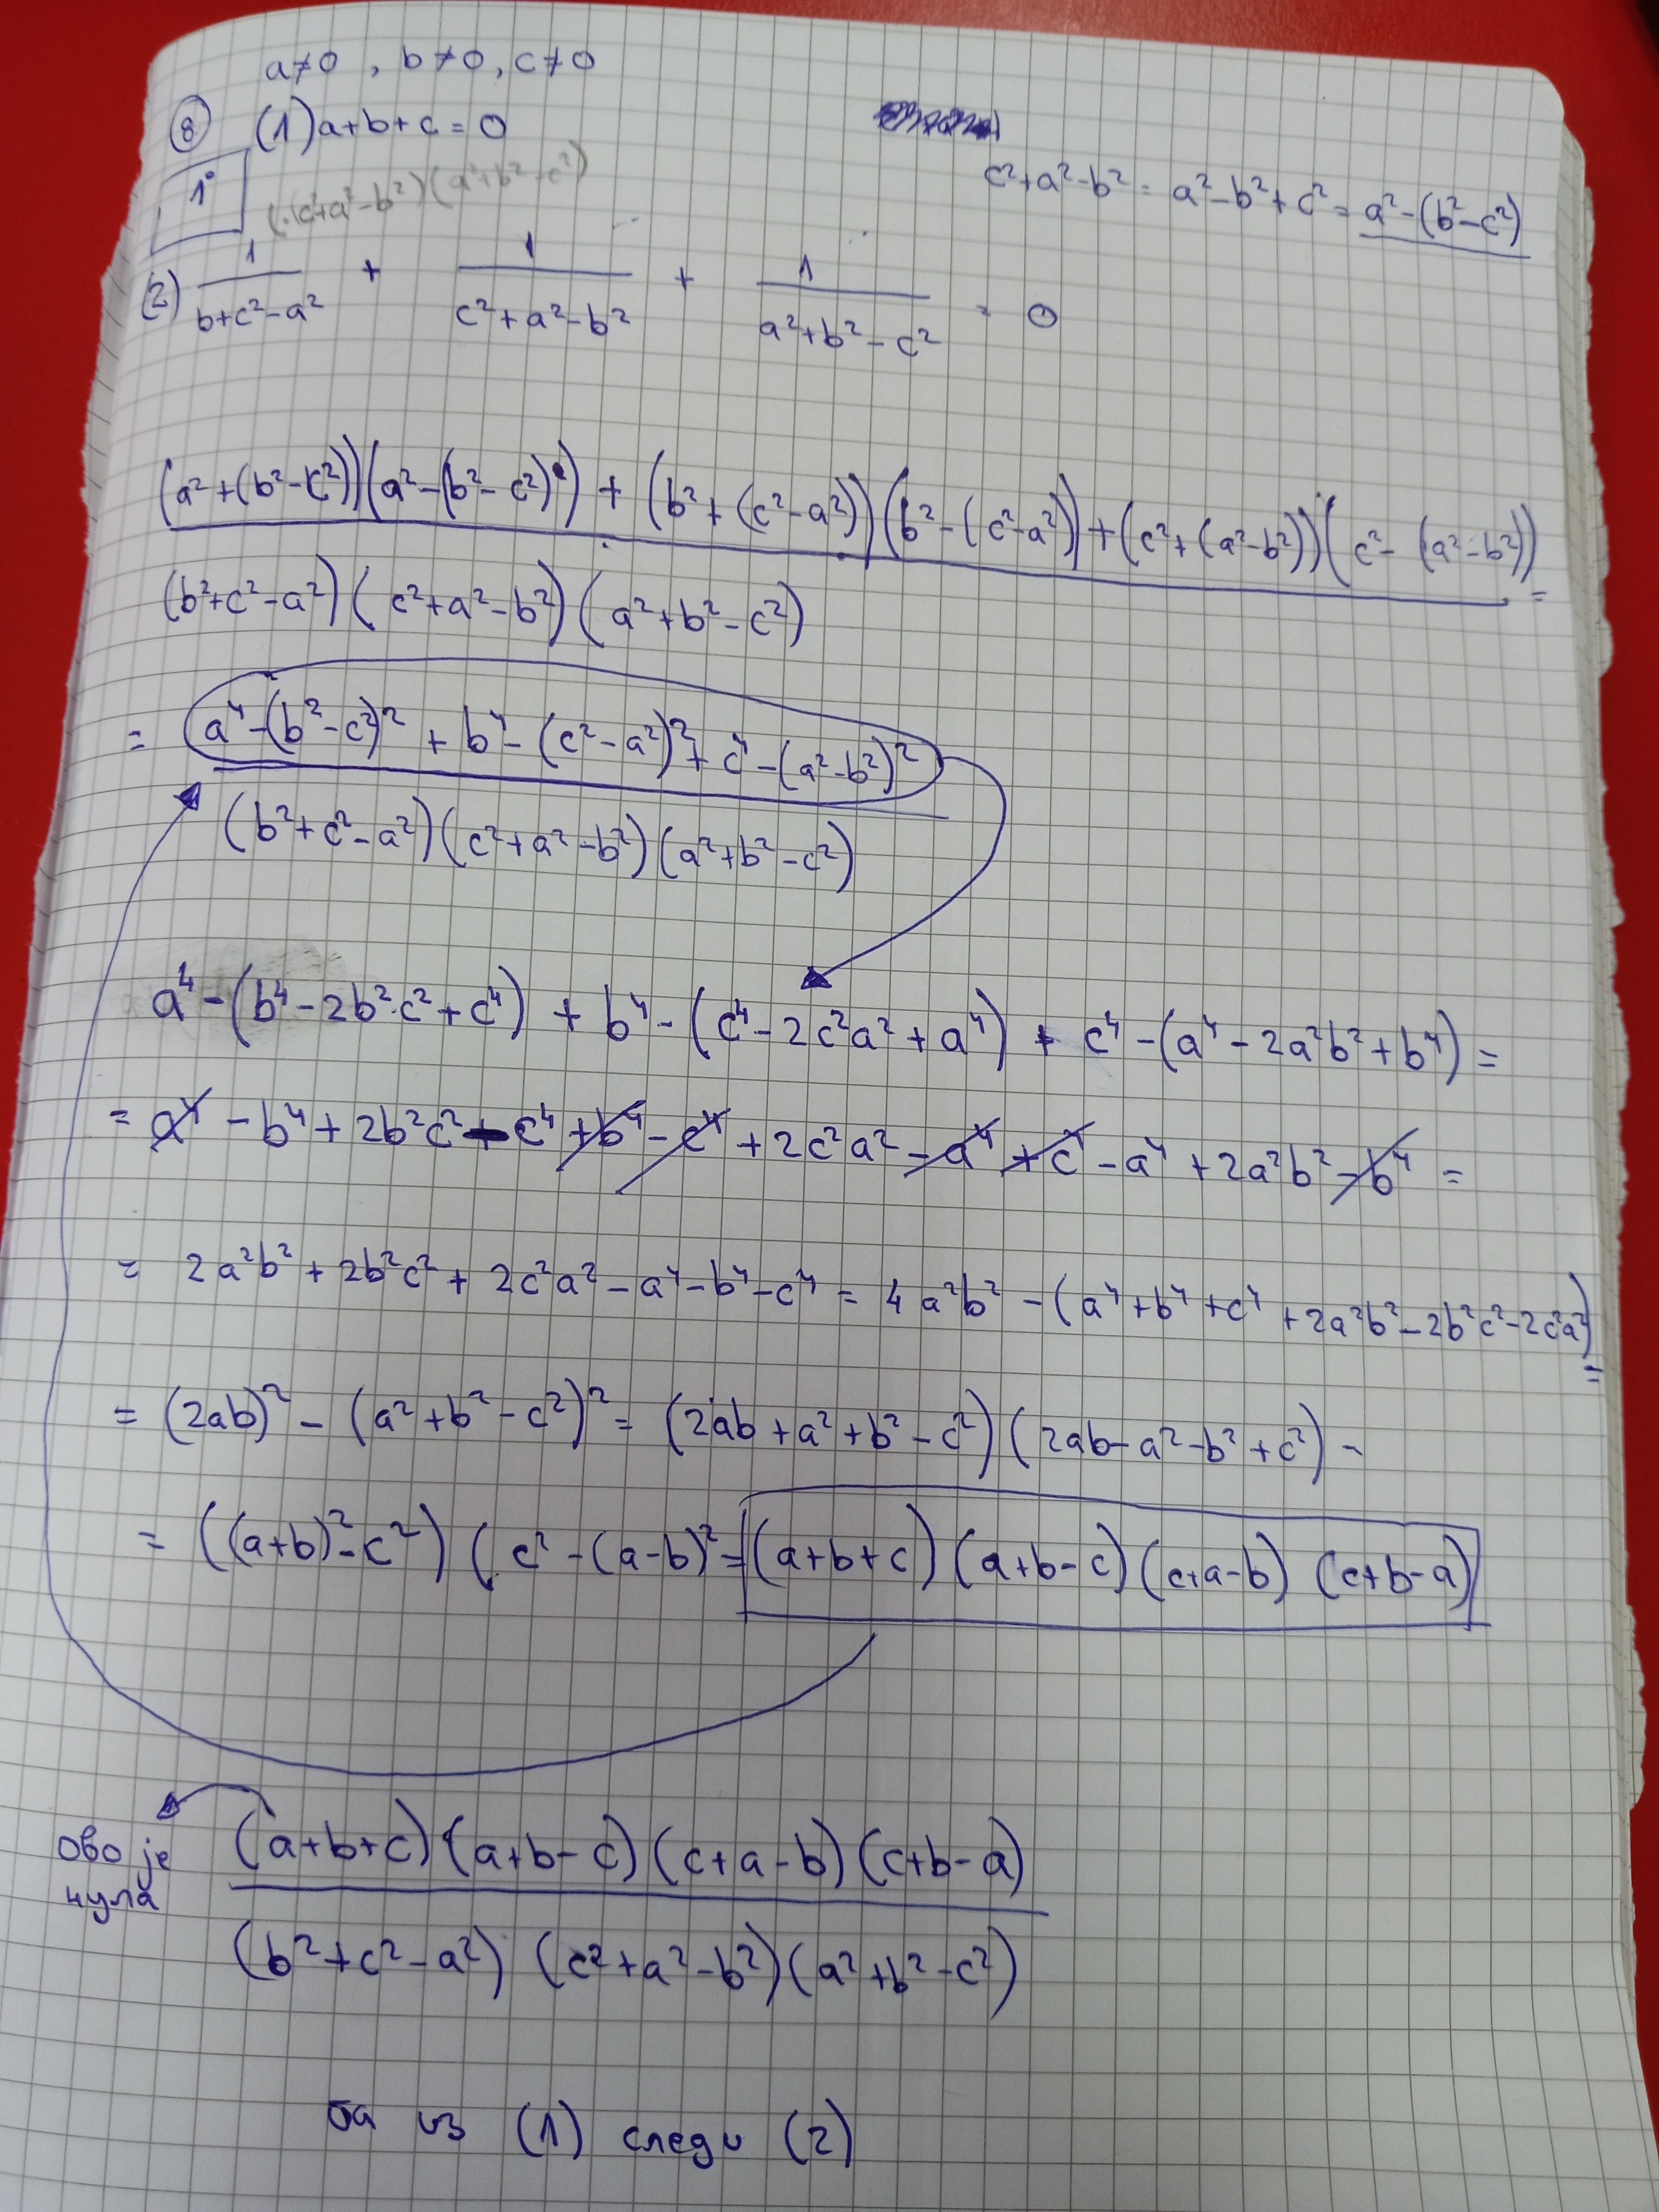 a≠0 , b≠0, c≠0
⑧ (1) a+b+c = 0
1° (c²+a²-b²)(a²+b²-c²)
c²+a²-b² = a²-b²+c² = a²-(b²-c²)
(2) 1/(b+c²-a²) + 1/(c²+a²-b²) + 1/(a²+b²-c²) = 0
(a²+(b²-c²))(a²-(b²-c²)) + (b²+(c²-a²))(b²-(c²-a²)) + (c²+(a²-b²))(c²-(a²-b²)) =
(b²+c²-a²)(c²+a²-b²)(a²+b²-c²)
= a⁴-(b²-c²)² + b⁴-(c²-a²)² + c⁴-(a²-b²)²
(b²+c²-a²)(c²+a²-b²)(a²+b²-c²)
a⁴-(b⁴-2b²·c²+c⁴) + b⁴-(c⁴-2c²a²+a⁴) + c⁴-(a⁴-2a²b²+b⁴) =
= a⁴ - b⁴ + 2b²c² - c⁴ + b⁴ - c⁴ + 2c²a² - a⁴ + c⁴ - a⁴ + 2a²b² - b⁴ =
= 2a²b² + 2b²c² + 2c²a² - a⁴ - b⁴ - c⁴ = 4a²b² - (a⁴+b⁴+c⁴+2a²b²-2b²c²-2c²a²) =
= (2ab)² - (a²+b²-c²)² = (2ab+a²+b²-c²)(2ab-a²-b²+c²) -
= ((a+b)²-c²)(c²-(a-b)² = (a+b+c)(a+b-c)(c+a-b)(c+b-a)
ово је
нула
(a+b+c)(a+b-c)(c+a-b)(c+b-a)
(b²+c²-a²)(c²+a²-b²)(a²+b²-c²)
па из (1) следи (2)